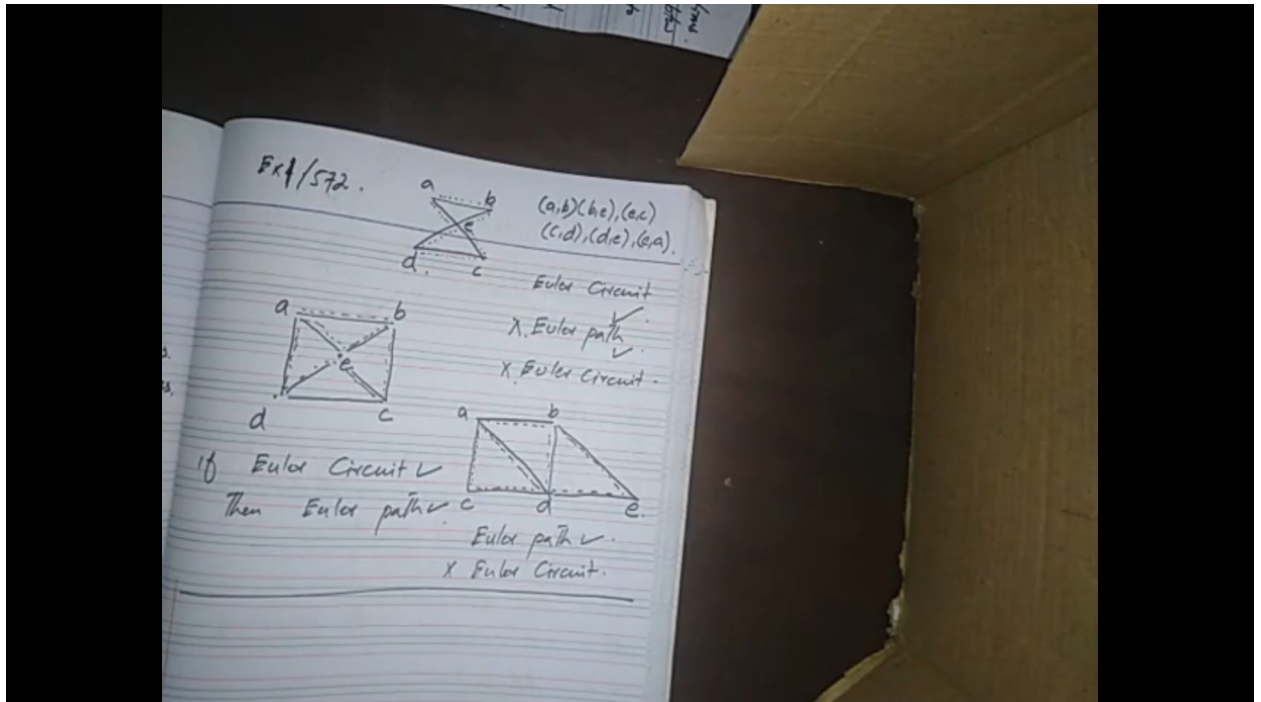 Ex1/572.
a
b
e
d
c
(a,b)(b,e),(e,c)
(c,d),(d,e),(e,a).
Euler Circuit ✓.
a
b
e
d
c
X. Euler path ✓.
X. Euler Circuit.
a
b
c
d
e.
if Euler Circuit ✓
Then Euler path ✓.
Euler path ✓.
X Euler Circuit.